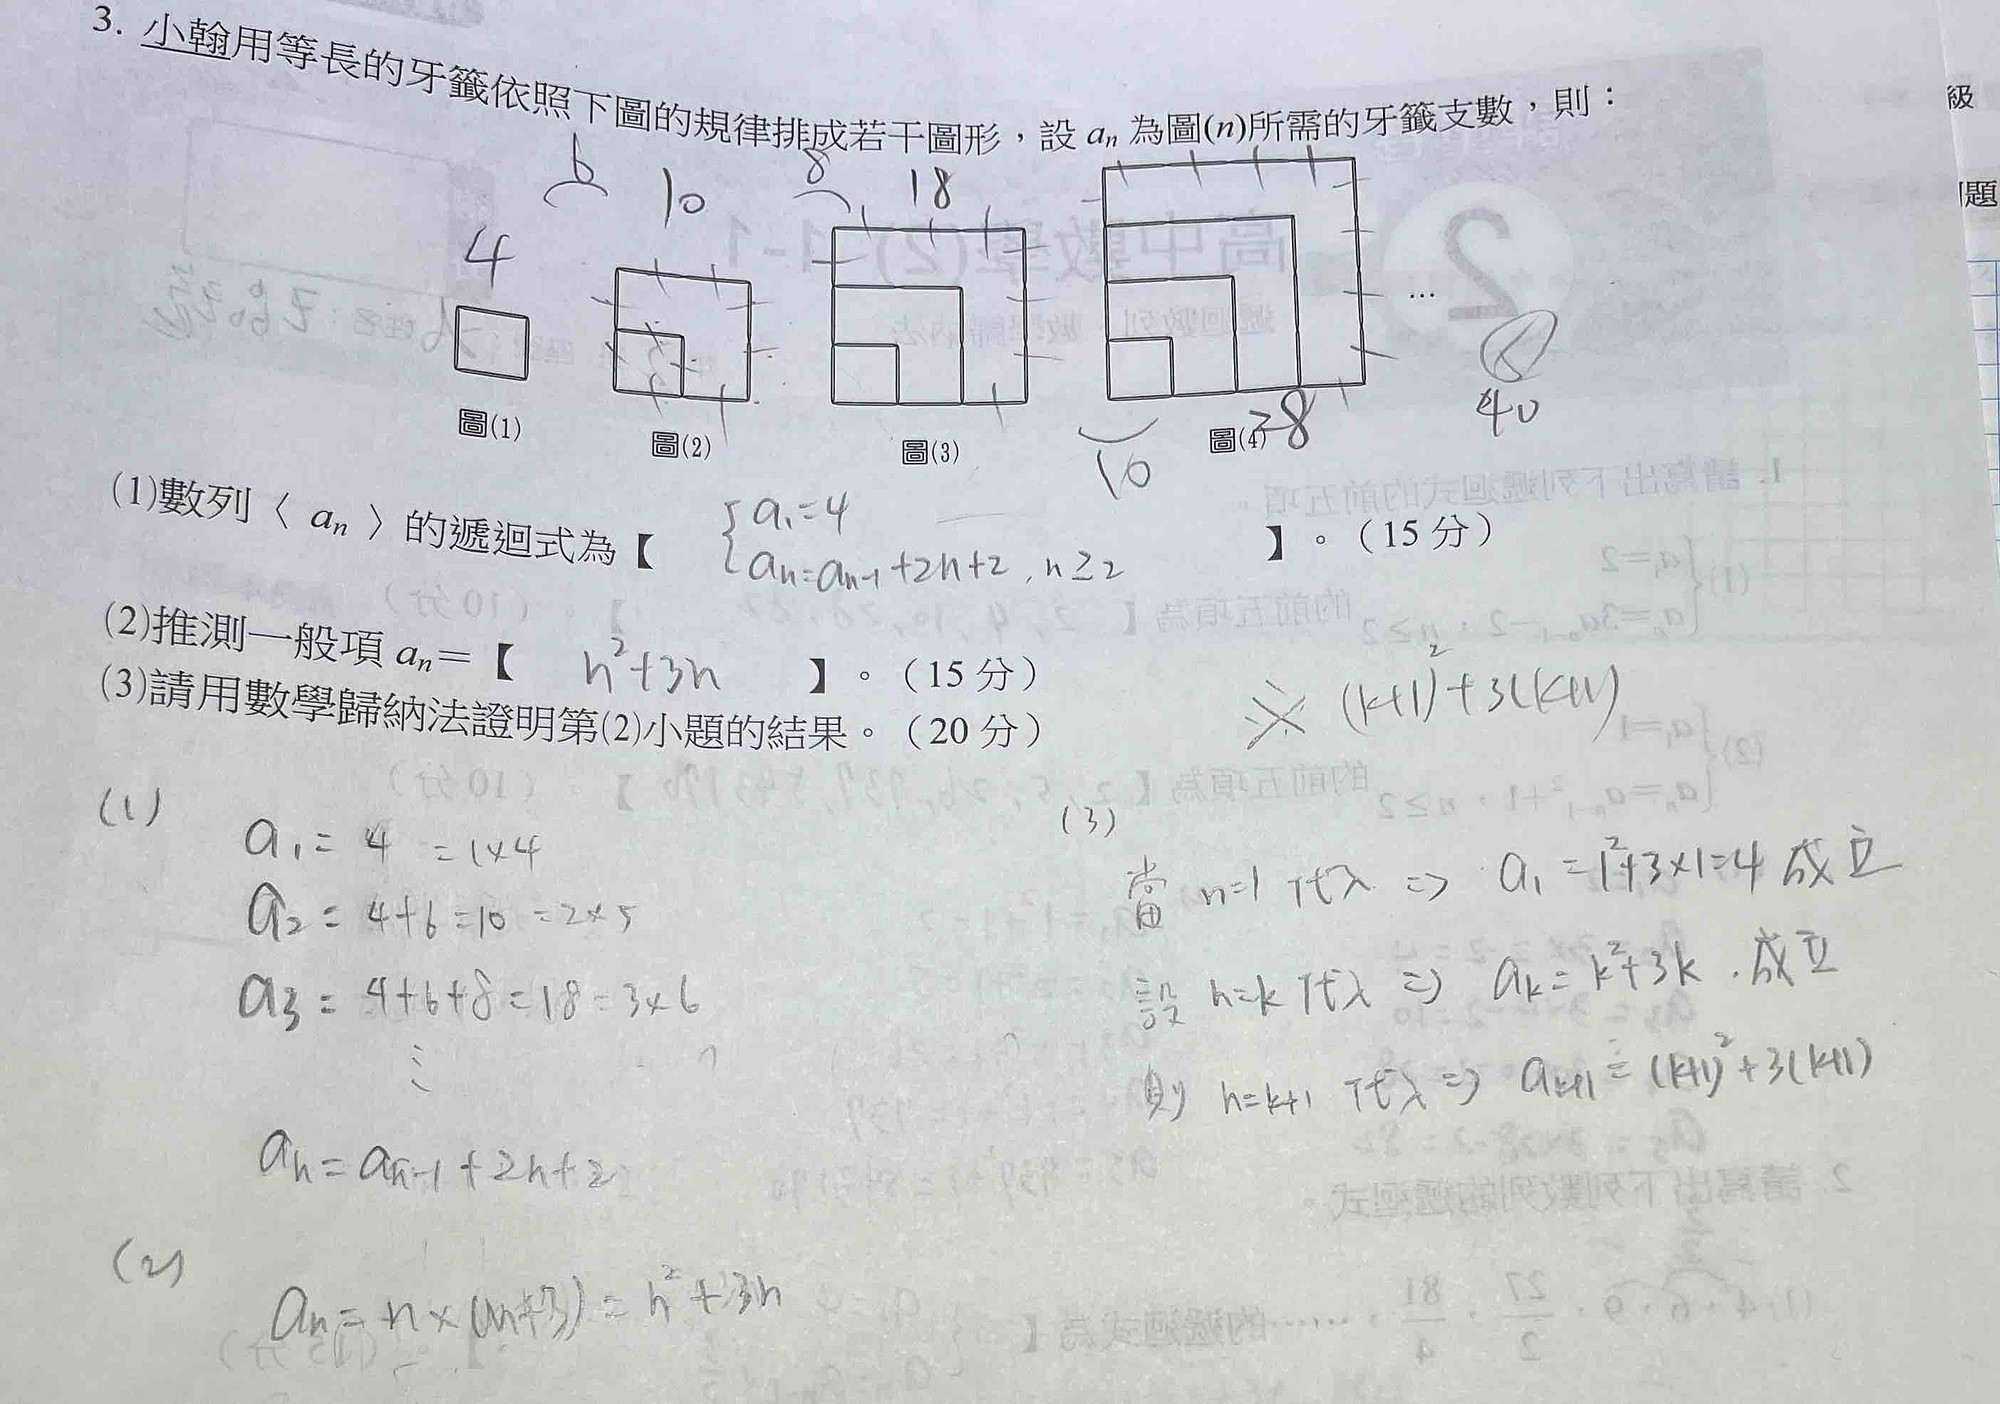 3. 小翰用等長的牙籤依照下圖的規律排成若干圖形，設 aₙ 為圖(n)所需的牙籤支數，則：
6
8
4
10
18
…
圖(1)
圖(2)
圖(3)
圖(4)
10
28
40
級
題
(1)數列〈 aₙ 〉的遞迴式為【 { a₁=4
aₙ=aₙ₋₁+2n+2, n≥2 】。（15 分）
(2)推測一般項 aₙ＝【 n²+3n 】。（15 分）
(3)請用數學歸納法證明第(2)小題的結果。（20 分）
※ (k+1)²+3(k+1)
(1)
a₁= 4 =1×4
a₂= 4+6=10 =2×5
a₃= 4+6+8=18=3×6
⋮
aₙ=aₙ₋₁+2n+2
(2)
aₙ=n×(n+3)=n²+3n
(3)
當 n=1 代入 ⇒ a₁=1²+3×1=4 成立
設 n=k 代入 ⇒ aₖ=k²+3k . 成立
則 n=k+1 代入 ⇒ aₖ₊₁=(k+1)²+3(k+1)